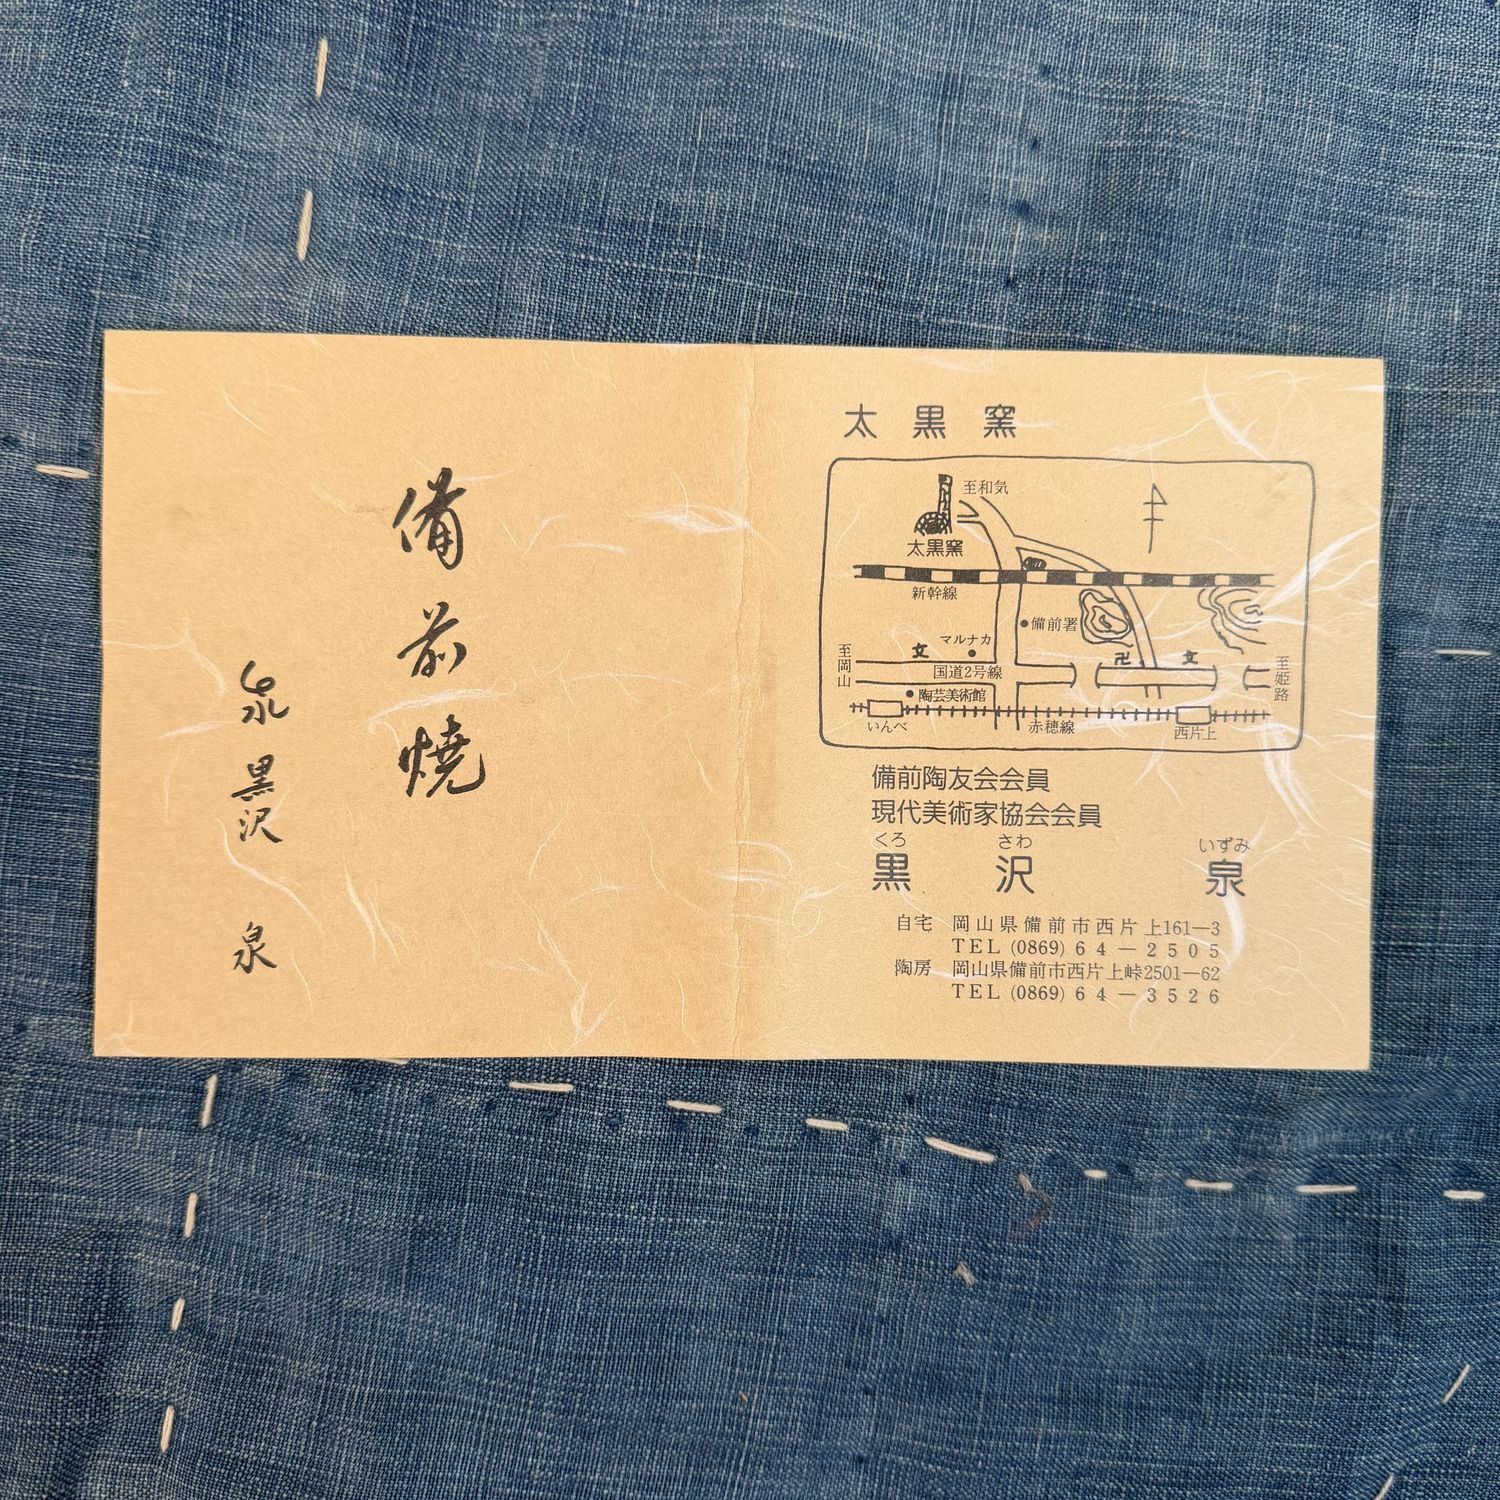 備前焼
泉 黒沢 泉
太黒窯
至和気
太黒窯
新幹線
備前署
マルナカ
文
卍
文
至岡山
国道2号線
至姫路
陶芸美術館
いんべ
赤穂線
西片上
備前陶友会会員
現代美術家協会会員
くろ さわ いずみ
黒 沢 泉
自宅 岡山県備前市西片上161―3
TEL (0869) 64―2505
陶房 岡山県備前市西片上峠2501―62
TEL (0869) 64―3526